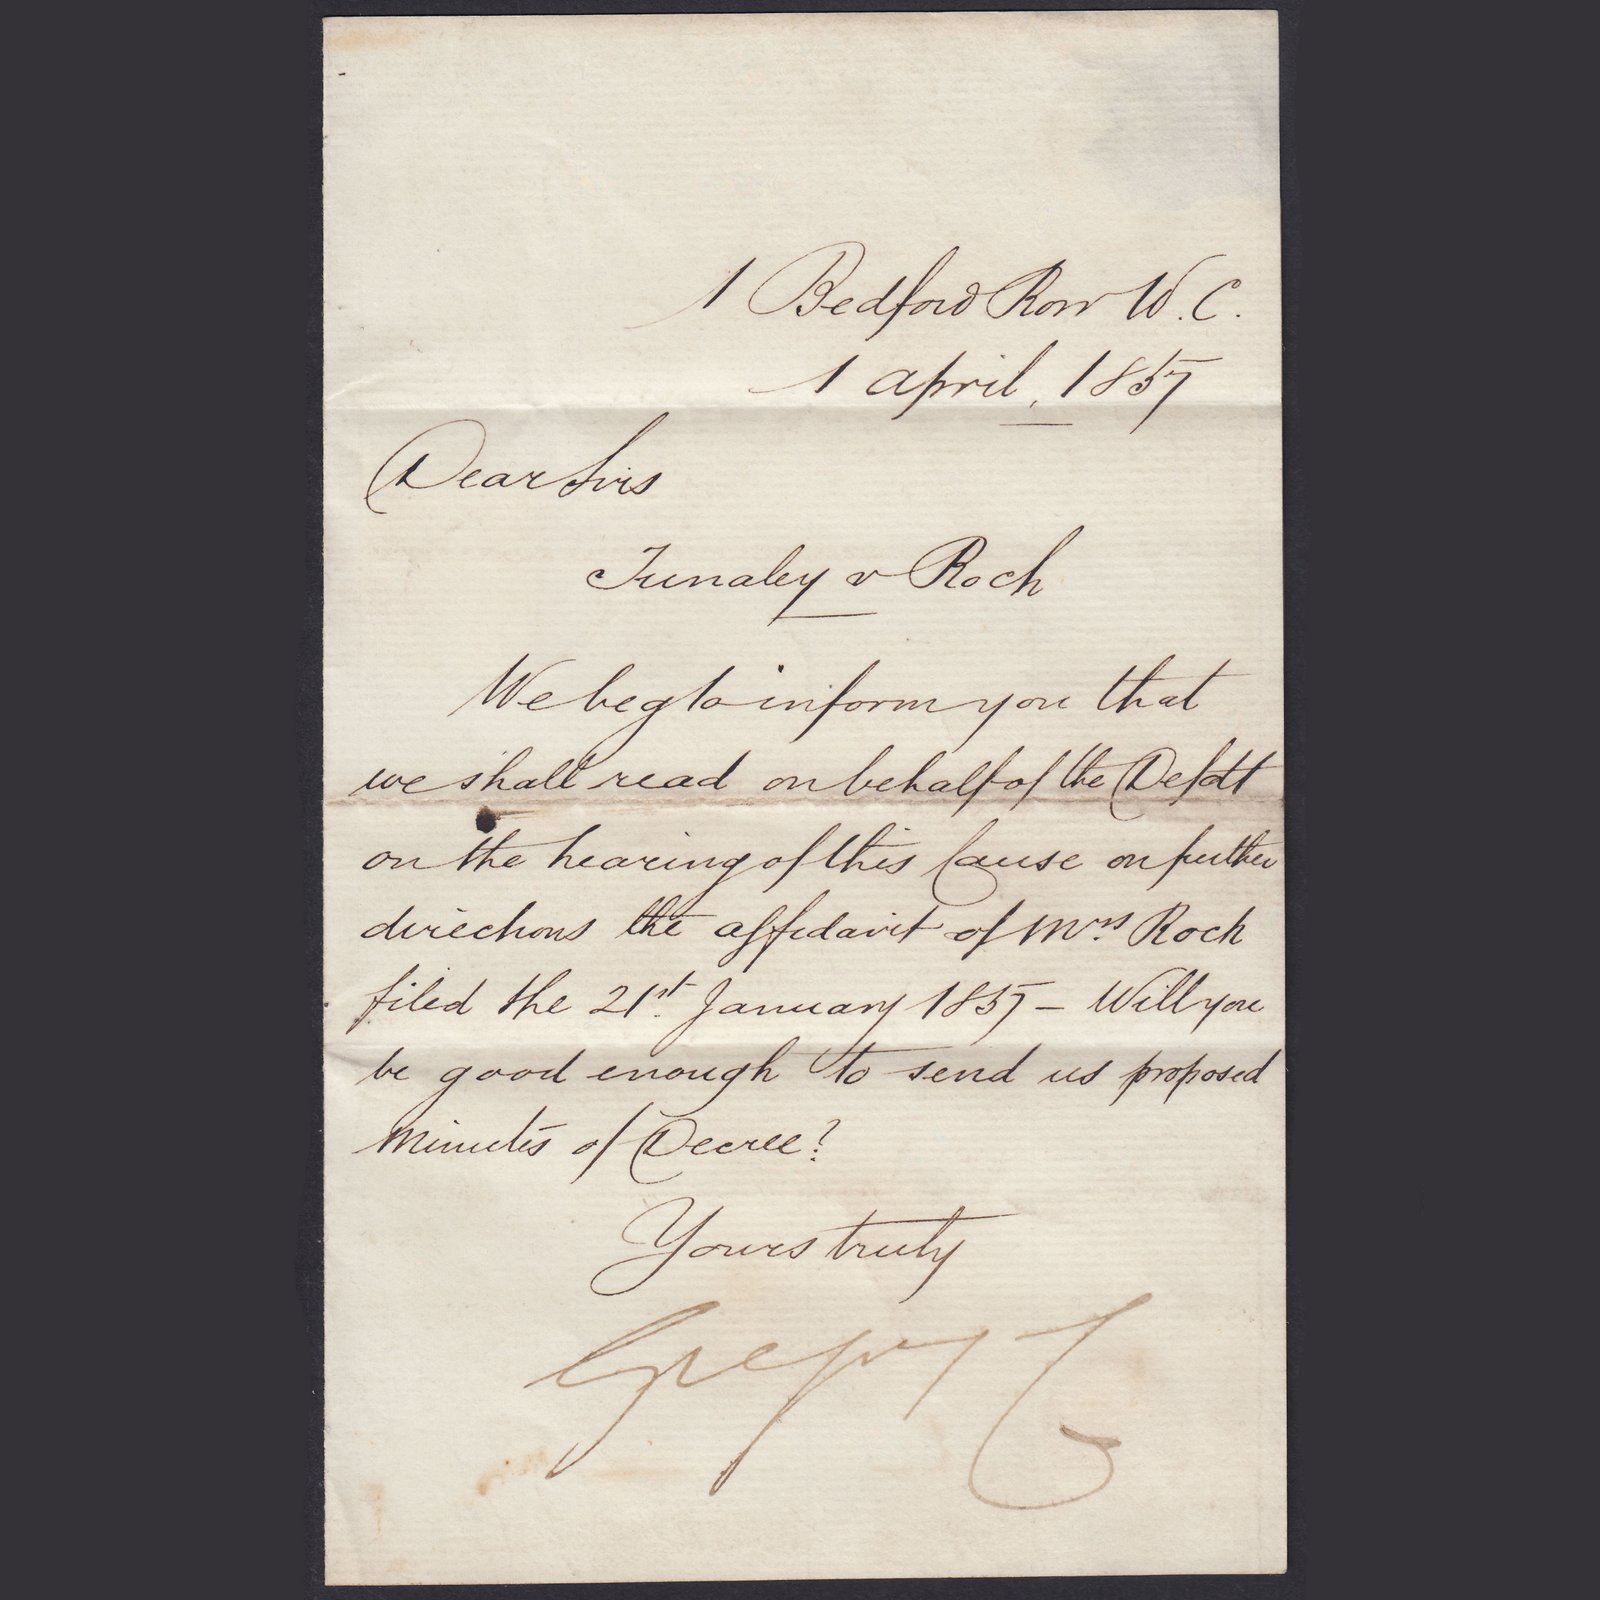 1 Bedford Row W.C.
1 April, 1857
Dear Sirs
Tunaley v Roch
We beg to inform you that
we shall read on behalf of the Defdt
on the hearing of this Cause on further
directions the affidavit of Mrs. Roch
filed the 21st. January 1857 – Will you
be good enough to send us proposed
Minutes of Decree?
Yours truly